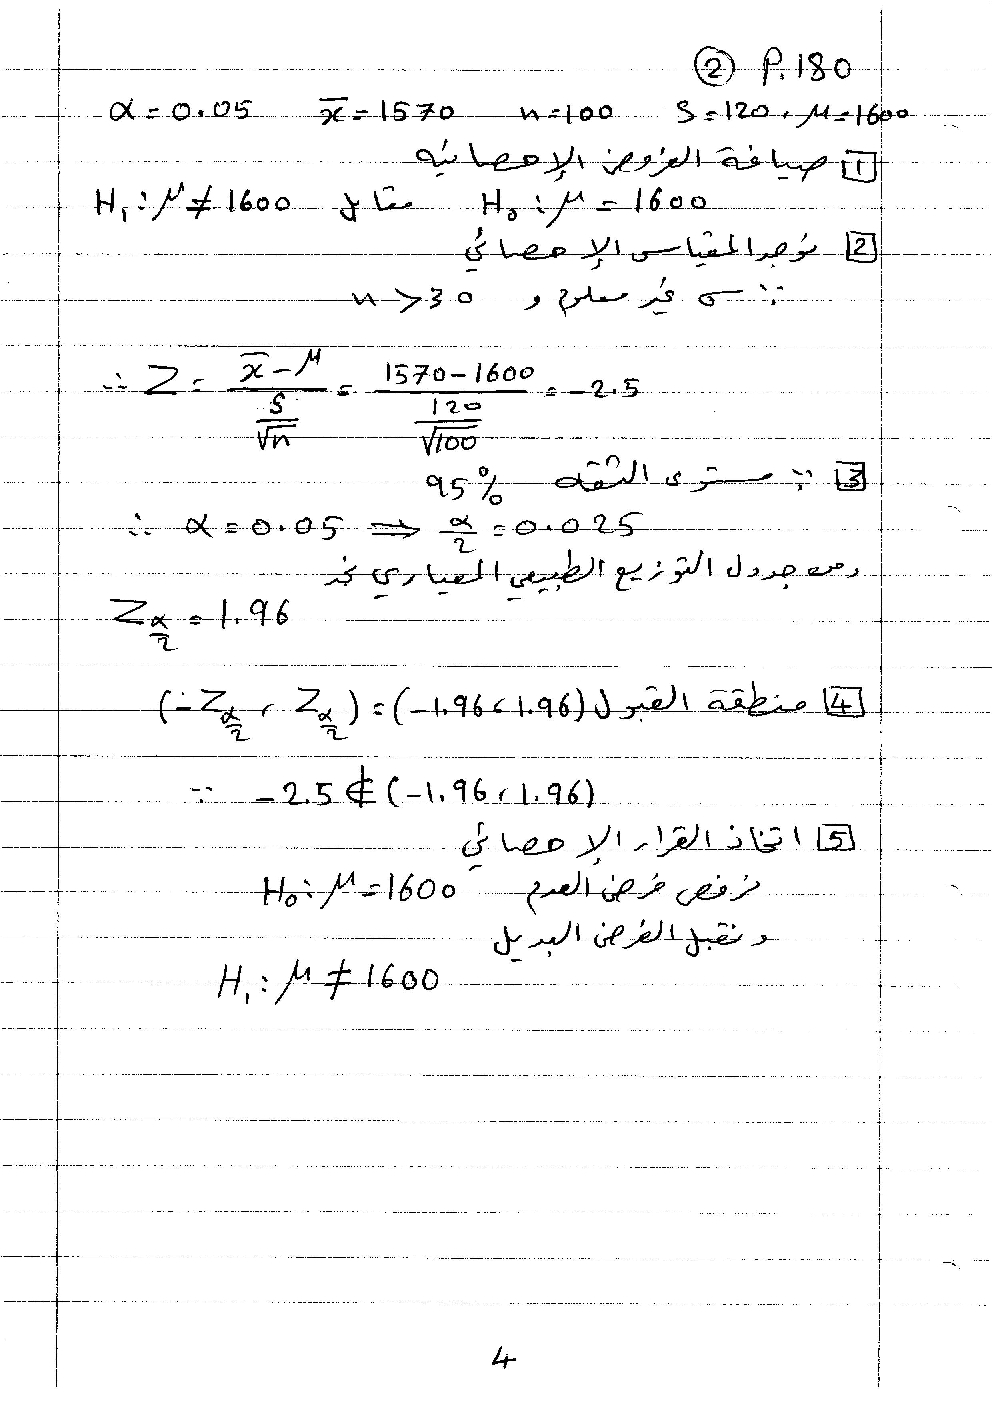 ② P.180
α = 0.05 x̄ = 1570 n = 100 S = 120 , μ = 1600
1 صياغة الفروض الإحصائية
H₀ : μ = 1600 مقابل H₁ : μ ≠ 1600
2 نوجد المقياس الإحصائي
∵ σ غير معلوم و n > 30
∴ Z = (x̄ - μ) / (S/√n) = (1570 - 1600) / (120/√100) = -2.5
3 ∵ مستوى الثقة 95%
∴ α = 0.05 ⇒ α/2 = 0.025
ومن جدول التوزيع الطبيعي المعياري نجد
Z α/2 = 1.96
4 منطقة القبول (-Z α/2 , Z α/2) = (-1.96 , 1.96)
∵ -2.5 ∉ (-1.96 , 1.96)
5 اتخاذ القرار الإحصائي
نرفض فرض العدم H₀ : μ = 1600
ونقبل الفرض البديل
H₁ : μ ≠ 1600
4